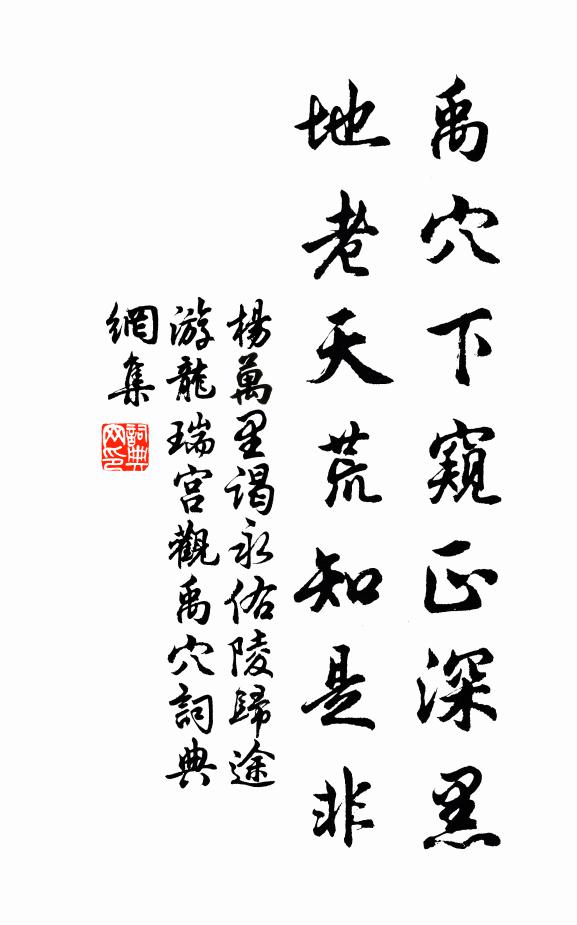 禹穴下窺正深黑
地老天荒知是非
楊萬里謁永佑陵歸途
游龍瑞宮觀禹穴詞典
網集
詞典網印